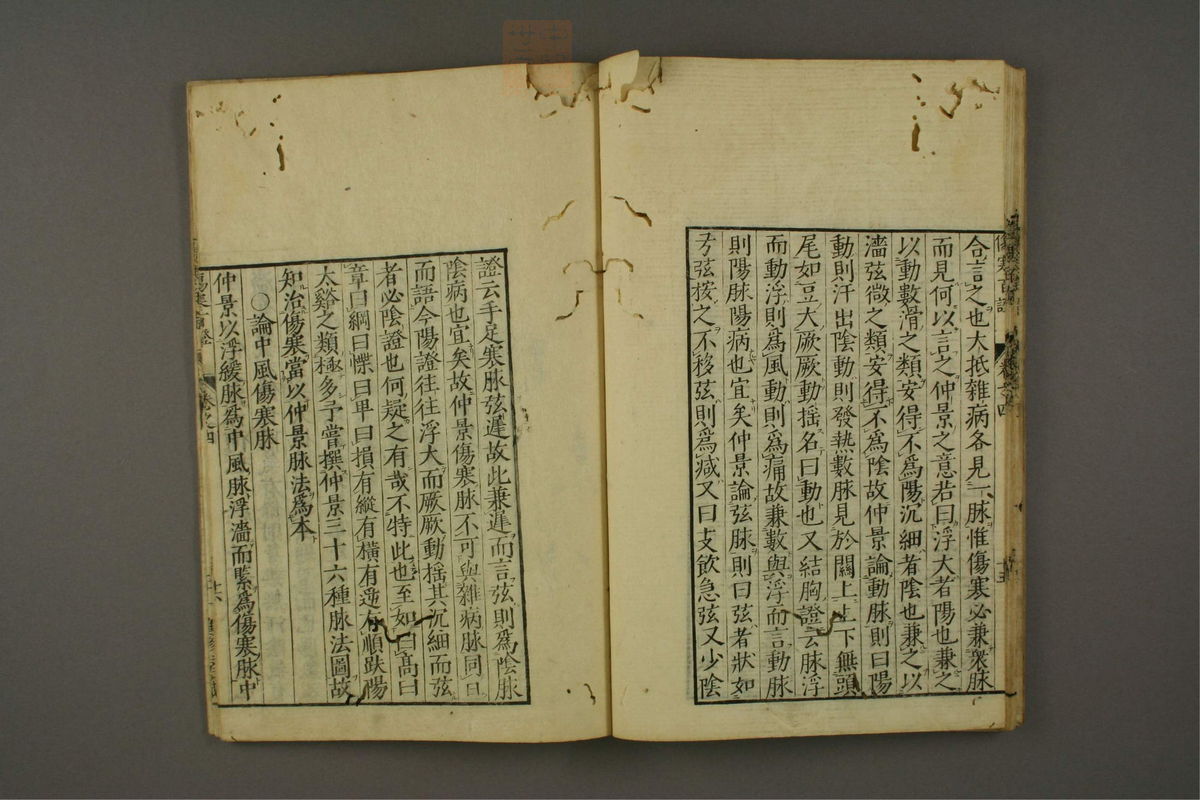 合言之也大抵雜病各見一脉惟傷寒必兼衆脉
而見何以言之仲景之意若曰浮大者陽也兼之
以動數滑之類安得不爲陽沉細者陰也兼之以
濇弦微之類安得不爲陰故仲景論動脉則曰陽
動則汗出陰動則發熱數脉見於關上上下無頭
尾如豆大厥厥動揺名曰動也又結胸證云脉浮
而動浮則爲風動則爲痛故兼數與浮而言動脉
則陽脉陽病也宜矣仲景論弦脉則曰弦者狀如
弓弦按之不移弦則爲減又曰支飲急弦又少陰
證云手足寒脉弦遲故此兼遲而言弦則爲陰脉
陰病也宜矣故仲景傷寒脉不可與雜病脉同日
而語今陽證往往浮大而厥厥動揺其沉細而弦
者必陰證也何疑之有哉不特此也至如曰高曰
章曰綱曰惵曰卑曰損有縱有橫有逆有順趺陽
太谿之類極多予嘗撰仲景三十六種脉法圖故
知治傷寒當以仲景脉法爲本
○論中風傷寒脉
仲景以浮緩脉爲中風脉浮濇而緊爲傷寒脉中
卷之四
十六